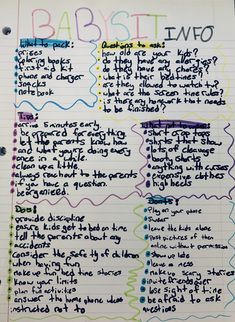 BABYSIT INFO
What to pack:
prizes
coloring books
first aid kit
phone and charger
snacks
note book
Questions to ask:
how old are your kids?
do they have any allergies?
do they have any
what is their bedtimes?
are they allowed to watch TV?
what are the screen time rules?
is there any homework that needs
to be finished?
Tips:
arrive 5 minutes early
be prepared for everything
let the parents know how
and what you're doing every
once in a while.
clean up a little.
always reach out to the parents
if you have a question.
be organized.
short or crop tops
shirts that show
lots of cleavage
booty shorts
anything with curses
expensive clothes
high heels
Dos:
provide discipline
ensure kids get to bed on time
tell the parents about any
accidents
Consider the safety of children
when having fun
make up fun bed time stories
know your limits
plan fun activities
answer the home phone unless
instructed not to
Play on your phone
swear
leave the kids alone
post pictures of the
online without permission
show up late
leave a mess
make up scary stories
invite friends over
lose sight of time
be afraid to ask
questions